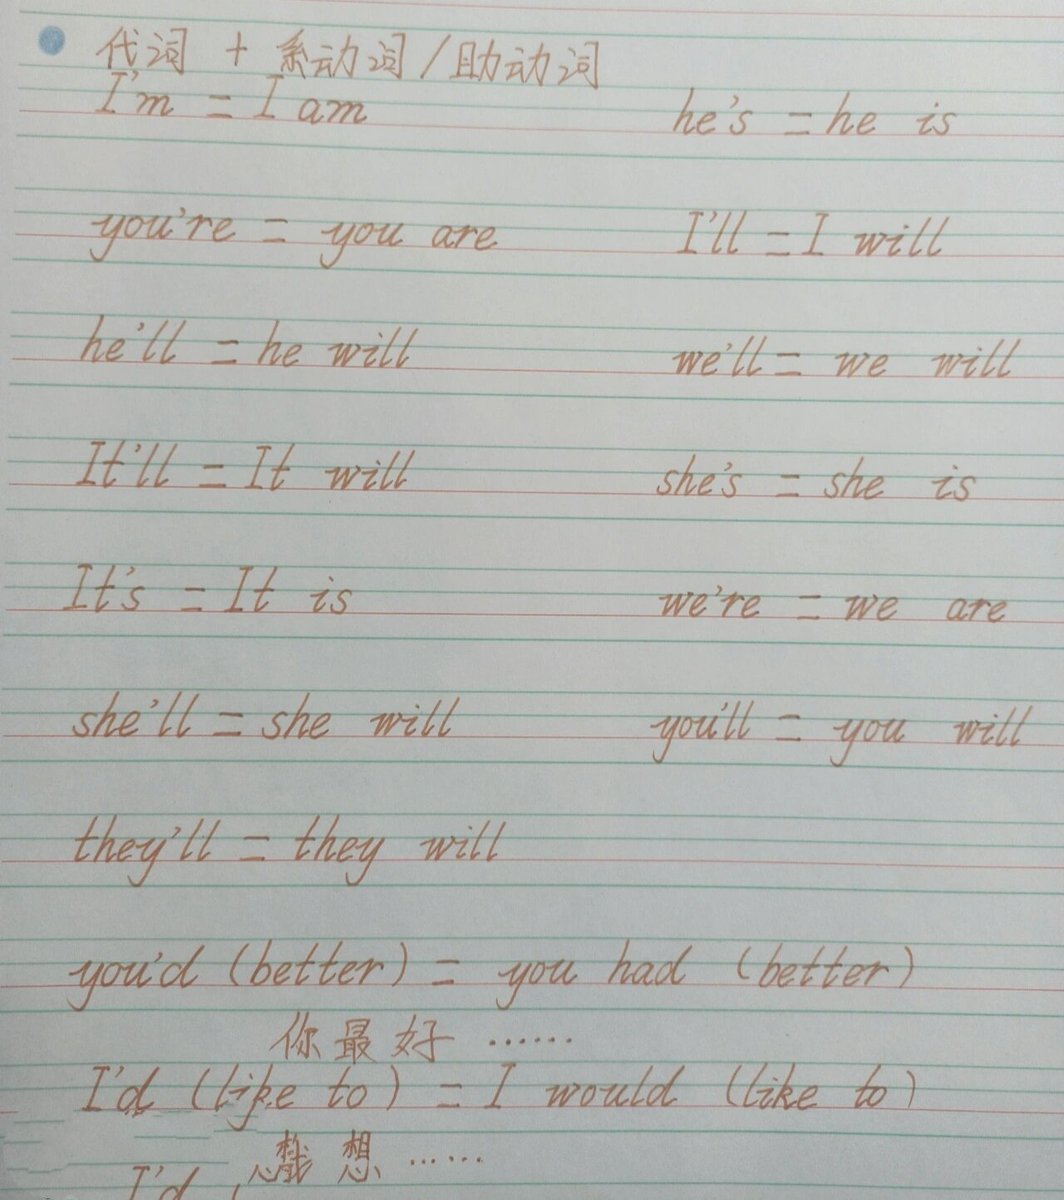 代词 + 系动词/助动词
I'm = I am he's = he is
you're = you are I'll = I will
he'll = he will we'll = we will
It'll = It will she's = she is
It's = It is we're = we are
she'll = she will you'll = you will
they'll = they will
you'd (better) = you had (better)
你最好 ……
I'd (like to) = I would (like to)
想 ……
I'd